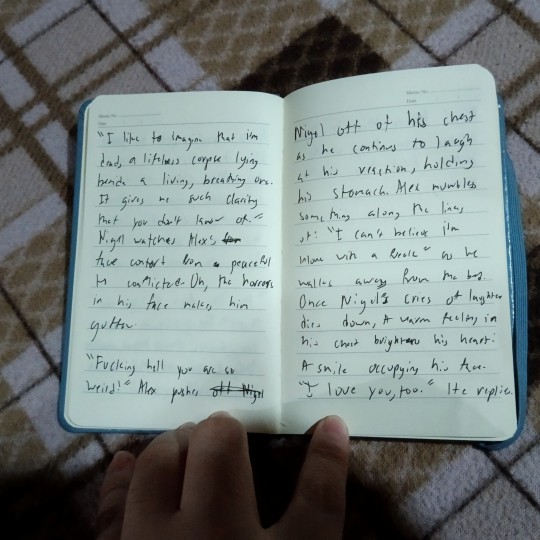 Memo No.
Date
"I like to imagine that i'm
dead, a lifeless corpse lying
beside a living, breathing one.
It gives me such clarity
that you don't know of."
Nigel watches Alex's
face contort from a peaceful
to conflicted. Oh, the horrors
in his face makes him
guffaw.
"Fucking hell you are so
weird!" Alex pushes off Nigel
Memo No.
Date
Nigel off of his chest
as he continues to laugh
at his reaction, holding
his stomach. Alex mumbles
something along the lines
of: "I can't believe i'm
inlove with a freak" as he
walks away from the bed.
Once Nigel's cries of laughter
dies down, A warm feeling in
his chest brightens his heart.
A smile occupying his face.
"I love you, too." He replies.